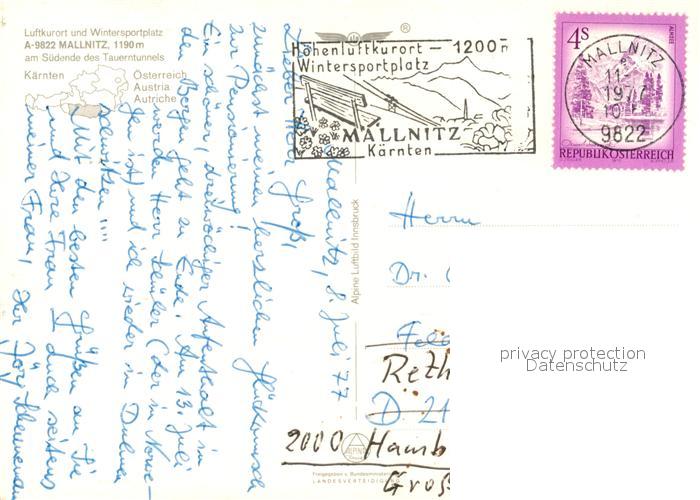 Luftkurort und Wintersportplatz
A-9822 MALLNITZ, 1190 m
am Südende des Tauerntunnels
Kärnten
Österreich
Austria
Autriche
®
Höhenluftkurort – 1200 m
Wintersportplatz
MALLNITZ
Kärnten
4S
MALLNITZ
11.
1977
10
9822
REPUBLIK ÖSTERREICH
Mallnitz, 8. Juli 77
Lieber Herr Groß,
zunächst meinen herzlichen Glückwunsch
zur Pensionierung!
Ein schöner, dreiwöchiger Aufenthalt in
den Bergen geht zu Ende. Am 13. Juli
werden Herr (der in Norwe-
gen ist) und ich wieder in
schwitzen!!!
Mit den besten Grüßen an Sie
und Ihre Frau auch seitens
meiner Frau, Ihr Jörg
Alpine Luftbild Innsbruck
Herrn
Dr. (
Reth
D 21
2000 Hamb
Groß
ALPINE
Freigegeben v. Bundesministerium
LANDESVERTEIDIGUNG
privacy protection
Datenschutz